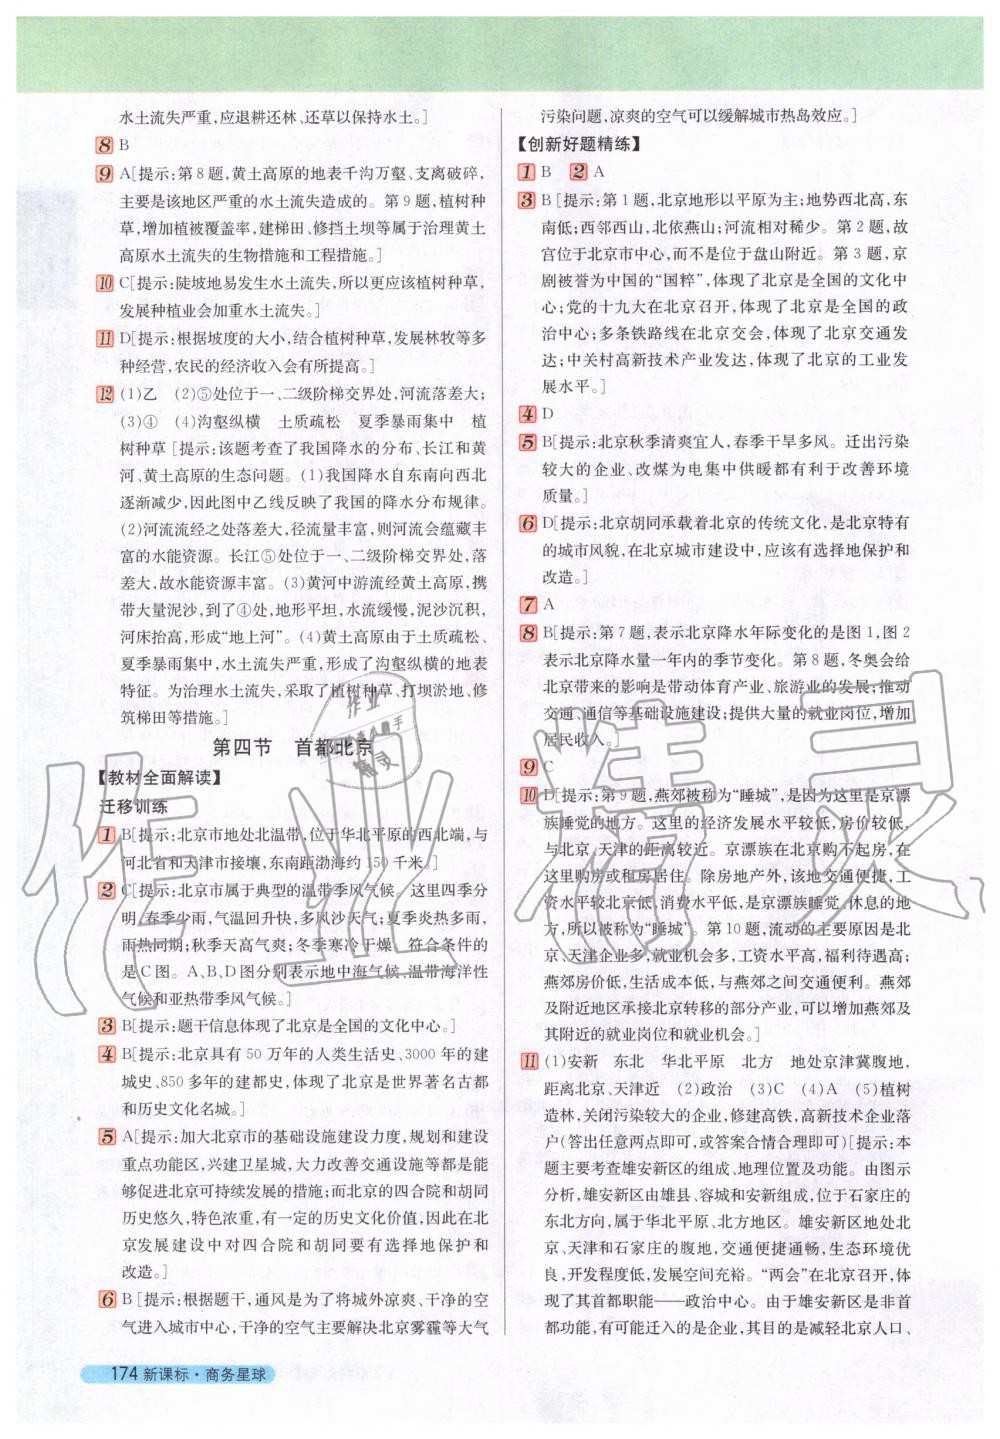 水土流失严重,应退耕还林、还草以保持水土。]
8 B
9 A[提示:第8题,黄土高原的地表千沟万壑、支离破碎,
主要是该地区严重的水土流失造成的。第9题,植树种
草,增加植被覆盖率,建梯田、修挡土坝等属于治理黄土
高原水土流失的生物措施和工程措施。]
10 C[提示:陡坡地易发生水土流失,所以更应该植树种草,
发展种植业会加重水土流失。]
11 D[提示:根据坡度的大小,结合植树种草、发展林牧等多
种经营,农民的经济收入会有所提高。]
12 (1)乙 (2)⑤处位于一、二级阶梯交界处,河流落差大;
(3)④ (4)沟壑纵横 土质疏松 夏季暴雨集中 植
树种草[提示:该题考查了我国降水的分布、长江和黄
河、黄土高原的生态问题。(1)我国降水自东南向西北
逐渐减少,因此图中乙线反映了我国的降水分布规律。
(2)河流流经之处落差大,径流量丰富,则河流会蕴藏丰
富的水能资源。长江⑤处位于一、二级阶梯交界处,落
差大,故水能资源丰富。(3)黄河中游流经黄土高原,携
带大量泥沙,到了④处,地形平坦,水流缓慢,泥沙沉积,
河床抬高,形成“地上河”。(4)黄土高原由于土质疏松、
夏季暴雨集中,水土流失严重,形成了沟壑纵横的地表
特征。为治理水土流失,采取了植树种草、打坝淤地、修
筑梯田等措施。]
第四节 首都北京
【教材全面解读】
迁移训练
1 B[提示:北京市地处北温带,位于华北平原的西北端,与
河北省和天津市接壤,东南距渤海约150千米。]
2 C[提示:北京市属于典型的温带季风气候。这里四季分
明,春季少雨,气温回升快,多风沙天气;夏季炎热多雨,
雨热同期;秋季天高气爽;冬季寒冷干燥。符合条件的
是C图。A、B、D图分别表示地中海气候、温带海洋性
气候和亚热带季风气候。]
3 B[提示:题干信息体现了北京是全国的文化中心。]
4 B[提示:北京具有50万年的人类生活史、3000年的建
城史、850多年的建都史,体现了北京是世界著名古都
和历史文化名城。]
5 A[提示:加大北京市的基础设施建设力度,规划和建设
重点功能区,兴建卫星城,大力改善交通设施等都是能
够促进北京可持续发展的措施;而北京的四合院和胡同
历史悠久,特色浓重,有一定的历史文化价值,因此在北
京发展建设中对四合院和胡同要有选择地保护和
改造。]
6 B[提示:根据题干,通风是为了将城外凉爽、干净的空
气进入城市中心,干净的空气主要解决北京雾霾等大气
174 新课标·商务星球
污染问题,凉爽的空气可以缓解城市热岛效应。]
【创新好题精练】
1 B 2 A
3 B[提示:第1题,北京地形以平原为主;地势西北高,东
南低;西邻西山,北依燕山;河流相对稀少。第2题,故
宫位于北京市中心,而不是位于盘山附近。第3题,京
剧被誉为中国的“国粹”,体现了北京是全国的文化中
心;党的十九大在北京召开,体现了北京是全国的政
治中心;多条铁路线在北京交会,体现了北京交通发
达;中关村高新技术产业发达,体现了北京的工业发
展水平。]
4 D
5 B[提示:北京秋季清爽宜人,春季干旱多风。迁出污染
较大的企业、改煤为电集中供暖都有利于改善环境
质量。]
6 D[提示:北京胡同承载着北京的传统文化,是北京特有
的城市风貌,在北京城市建设中,应该有选择地保护和
改造。]
7 A
8 B[提示:第7题,表示北京降水年际变化的是图1,图2
表示北京降水量一年内的季节变化。第8题,冬奥会给
北京带来的影响是带动体育产业、旅游业的发展;推动
交通、通信等基础设施建设;提供大量的就业岗位,增加
居民收入。]
9 C
10 D[提示:第9题,燕郊被称为“睡城”,是因为这里是京漂
族睡觉的地方。这里的经济发展水平较低,房价较低,
与北京、天津的距离较近。京漂族在北京购不起房,在
这里购房和租房居住。除房地产外,该地交通便捷,工
资水平较北京低,消费水平低,是京漂族睡觉、休息的地
方,所以被称为“睡城”。第10题,流动的主要原因是北
京、天津企业多,就业机会多,工资水平高,福利待遇高;
燕郊房价低,生活成本低,与燕郊之间交通便利。燕郊
及附近地区承接北京转移的部分产业,可以增加燕郊及
其附近的就业岗位和就业机会。]
11 (1)安新 东北 华北平原 北方 地处京津冀腹地,
距离北京、天津近 (2)政治 (3)C (4)A (5)植树
造林,关闭污染较大的企业,修建高铁,高新技术企业落
户(答出任意两点即可,或答案合情合理即可)[提示:本
题主要考查雄安新区的组成、地理位置及功能。由图示
分析,雄安新区由雄县、容城和安新组成,位于石家庄的
东北方向,属于华北平原、北方地区。雄安新区地处北
京、天津和石家庄的腹地,交通便捷通畅,生态环境优
良,开发程度低,发展空间充裕。“两会”在北京召开,体
现了其首都职能——政治中心。由于雄安新区是非首
都功能,有可能迁入的是企业,其目的是减轻北京人口、
作业精灵